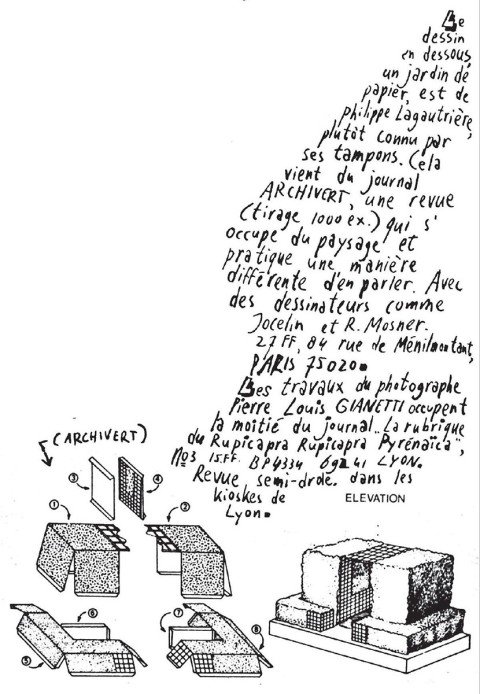 Le
dessin
en dessous,
un jardin de
papier, est de
philippe Lagautrière,
plutôt connu par
ses tampons. Cela
vient du journal
ARCHIVERT, une revue
(tirage 1000 ex.) qui s'
occupe du paysage et
pratique une manière
différente d'en parler. Avec
des dessinateurs comme
Jocelin et R. Mosner.
27 FF, 84 rue de Ménilmontant,
PARIS 75020.
Les travaux du photographe
Pierre Louis GIANETTI occupent
la moitié du journal "La rubrique
du Rupicapra Rupicapra Pyrénaïca",
No3 15.FF. BP4334 69241 LYON.
Revue semi-drole. dans les
kioskes de
Lyon.
(ARCHIVERT)
3
4
1
2
6
7
5
8
ELEVATION